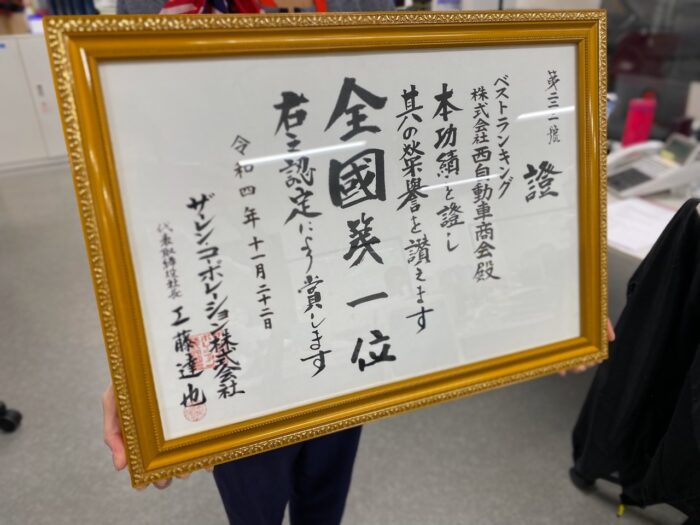 第二三一號
證
ベストランキング
株式会社西自動車商会殿
本功績を證し
其の榮譽を讃えます
全國第一位
右を認定により賞します
令和四年十一月二十二日
ザ・レンコーポレーション株式会社
代表取締役社長 工藤達也